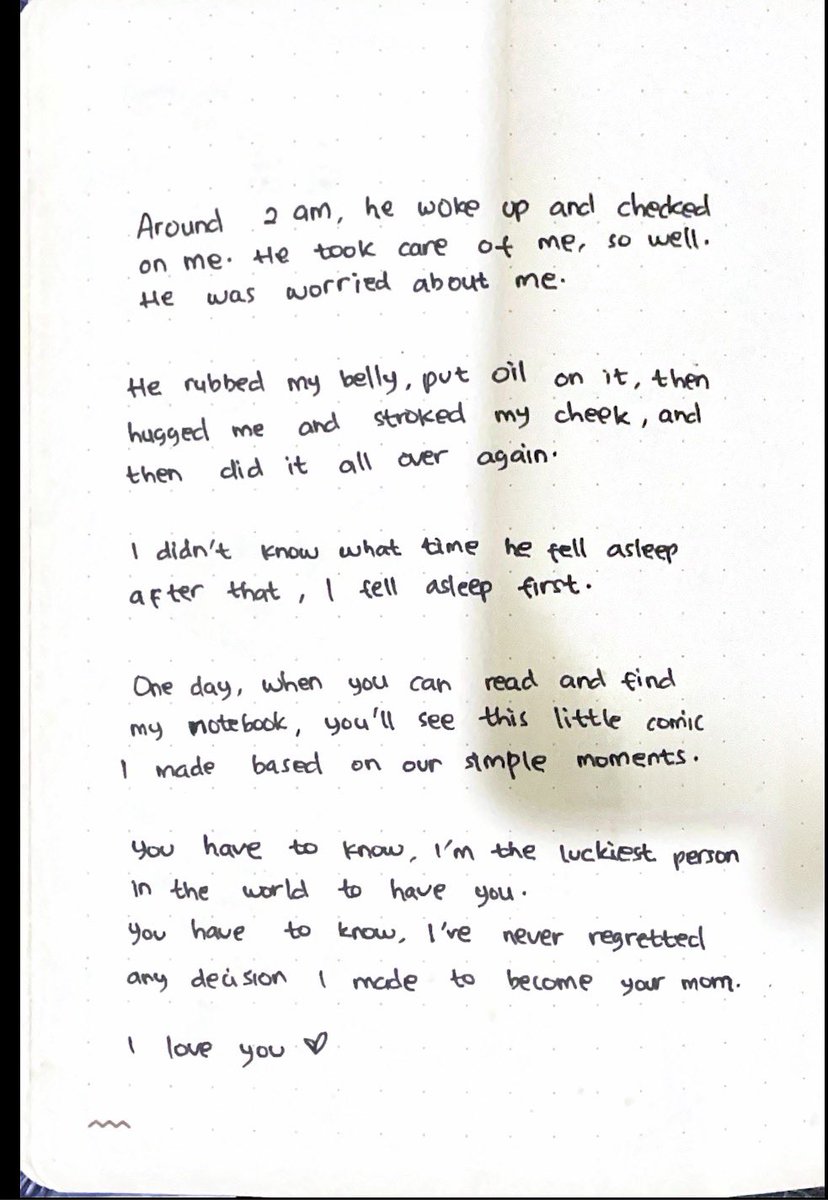 Around 2 am, he woke up and checked
on me. He took care of me, so well.
He was worried about me.
He rubbed my belly, put oil on it, then
hugged me and stroked my cheek, and
then did it all over again.
I didn't know what time he fell asleep
after that, I fell asleep first.
One day, when you can read and find
my notebook, you'll see this little comic
I made based on our simple moments.
You have to know, I'm the luckiest person
in the world to have you.
You have to know, I've never regretted
any decision I made to become your mom.
I love you ♡